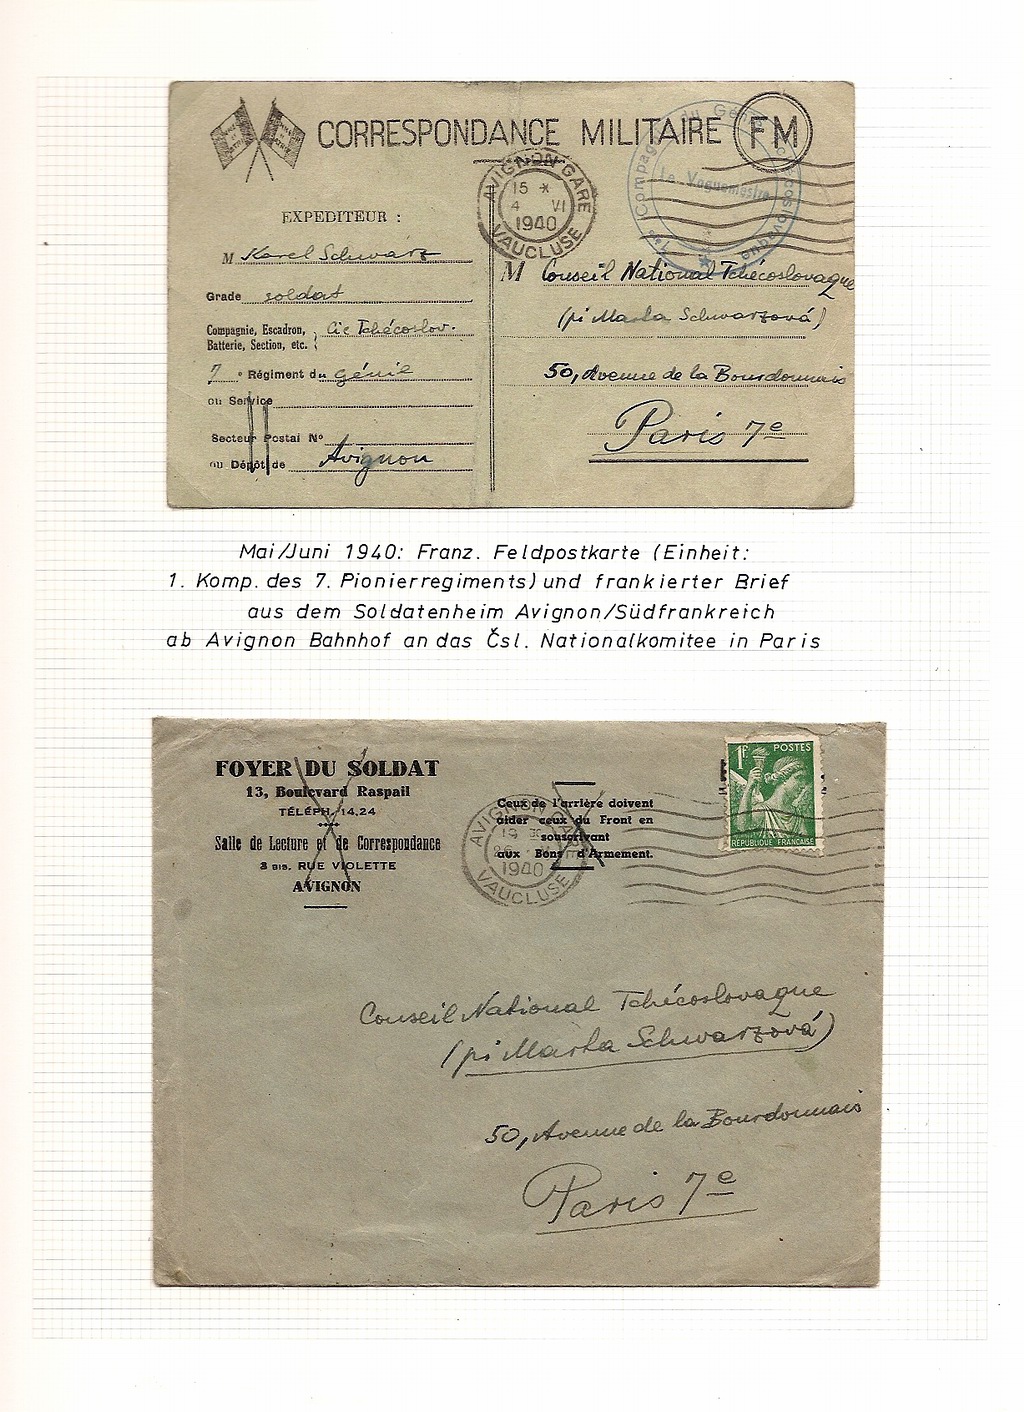 CORRESPONDANCE MILITAIRE FM
AVIGNON-GARE
15 *
4 VI
1940
VAUCLUSE
1ère Compagnie du Génie Tchécoslovaque
Le Vaguemestre
EXPEDITEUR :
M Karel Schwarz
Grade soldat
Compagnie, Escadron,
Batterie, Section, etc. : Cie Tchécoslov.
7 e Régiment du génie
ou Service
Secteur Postal No
ou Dépôt de Avignon
M Conseil National Tchécoslovaque
(pi Marta Schwarzová)
50, Avenue de la Bourdonnais
Paris 7e
Mai/Juni 1940: Franz. Feldpostkarte (Einheit:
1. Komp. des 7. Pionierregiments) und frankierter Brief
aus dem Soldatenheim Avignon/Südfrankreich
ab Avignon Bahnhof an das Čsl. Nationalkomitee in Paris
FOYER DU SOLDAT
13, Boulevard Raspail
TÉLÉPH. 14.24
Salle de Lecture et de Correspondance
3 BIS. RUE VIOLETTE
AVIGNON
Ceux de l'arrière doivent
aider ceux du Front en
souscrivant
aux Bons d'Armement.
AVIGNON GARE
19
1940
VAUCLUSE
1F. POSTES
RÉPUBLIQUE FRANÇAISE
Conseil National Tchécoslovaque
(pi Marta Schwarzová)
50, Avenue de la Bourdonnais
Paris 7e